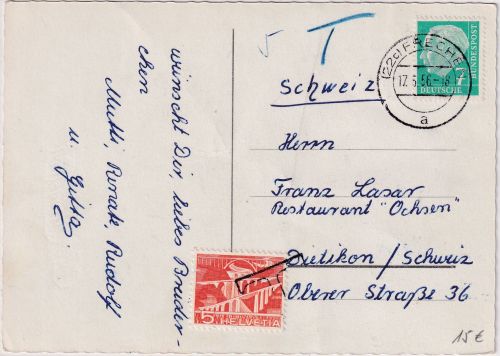 wünscht Dir, liebes Bruder-
chen
Mutti, Renate, Rudolf
u. Gitta.
T
DEUTSCHE
BUNDESPOST
(22c) FRECHEN
17.5.56-18
a
Schweiz
Herrn
Franz Lasar
Restaurant "Ochsen"
Dietikon / Schweiz
Oberer Straße 36
5
HELVETIA
15€